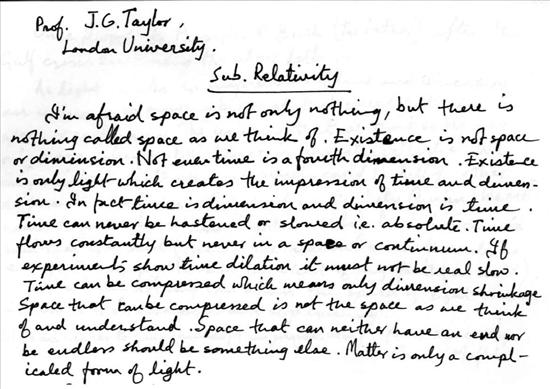 Prof. J.G. Taylor,
London University.
Sub. Relativity
I'm afraid space is not only nothing, but there is
nothing called space as we think of. Existence is not space
or dimension. Not even time is a fourth dimension. Existence
is only light which creates the impression of time and dimen-
sion. In fact time is dimension and dimension is time.
Time can never be hastened or slowed i.e. absolute. Time
flows constantly but never in a space or continuum. If
experiments show time dilation it must not be real slow.
Time can be compressed which means only dimension shrinkage
Space that can be compressed is not the space as we think
of and understand. Space that can neither have an end nor
be endless should be something else. Matter is only a compl-
icaled form of light.